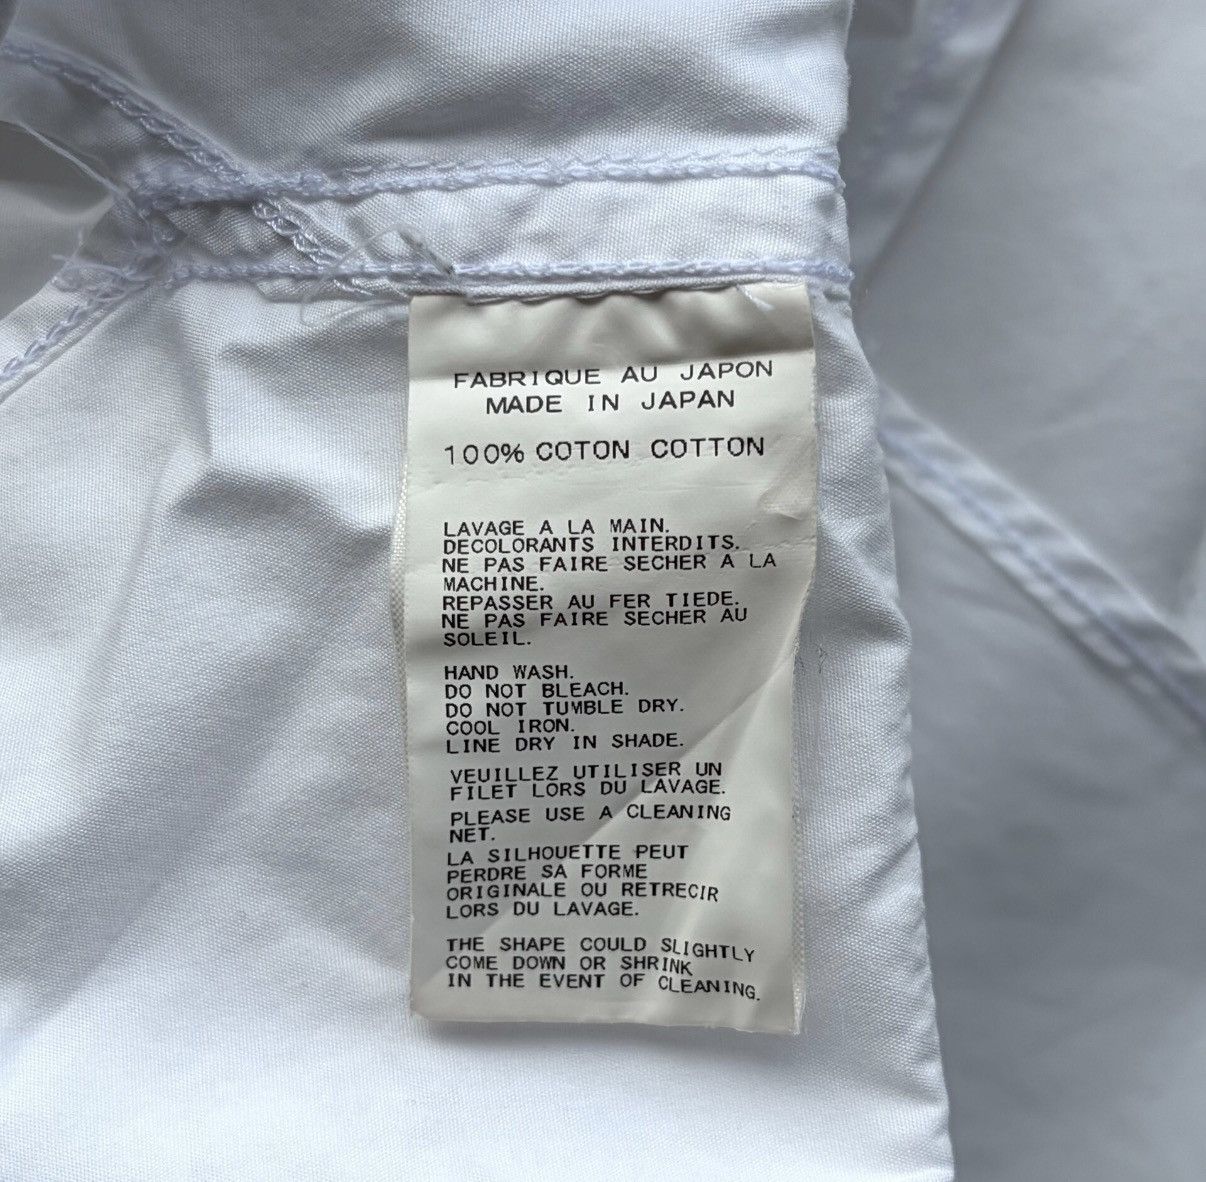 FABRIQUE AU JAPON
MADE IN JAPAN
100% COTON COTTON
LAVAGE A LA MAIN.
DECOLORANTS INTERDITS.
NE PAS FAIRE SECHER A LA
MACHINE.
REPASSER AU FER TIEDE.
NE PAS FAIRE SECHER AU
SOLEIL.
HAND WASH.
DO NOT BLEACH.
DO NOT TUMBLE DRY.
COOL IRON.
LINE DRY IN SHADE.
VEUILLEZ UTILISER UN
FILET LORS DU LAVAGE.
PLEASE USE A CLEANING
NET.
LA SILHOUETTE PEUT
PERDRE SA FORME
ORIGINALE OU RETRECIR
LORS DU LAVAGE.
THE SHAPE COULD SLIGHTLY
COME DOWN OR SHRINK
IN THE EVENT OF CLEANING.